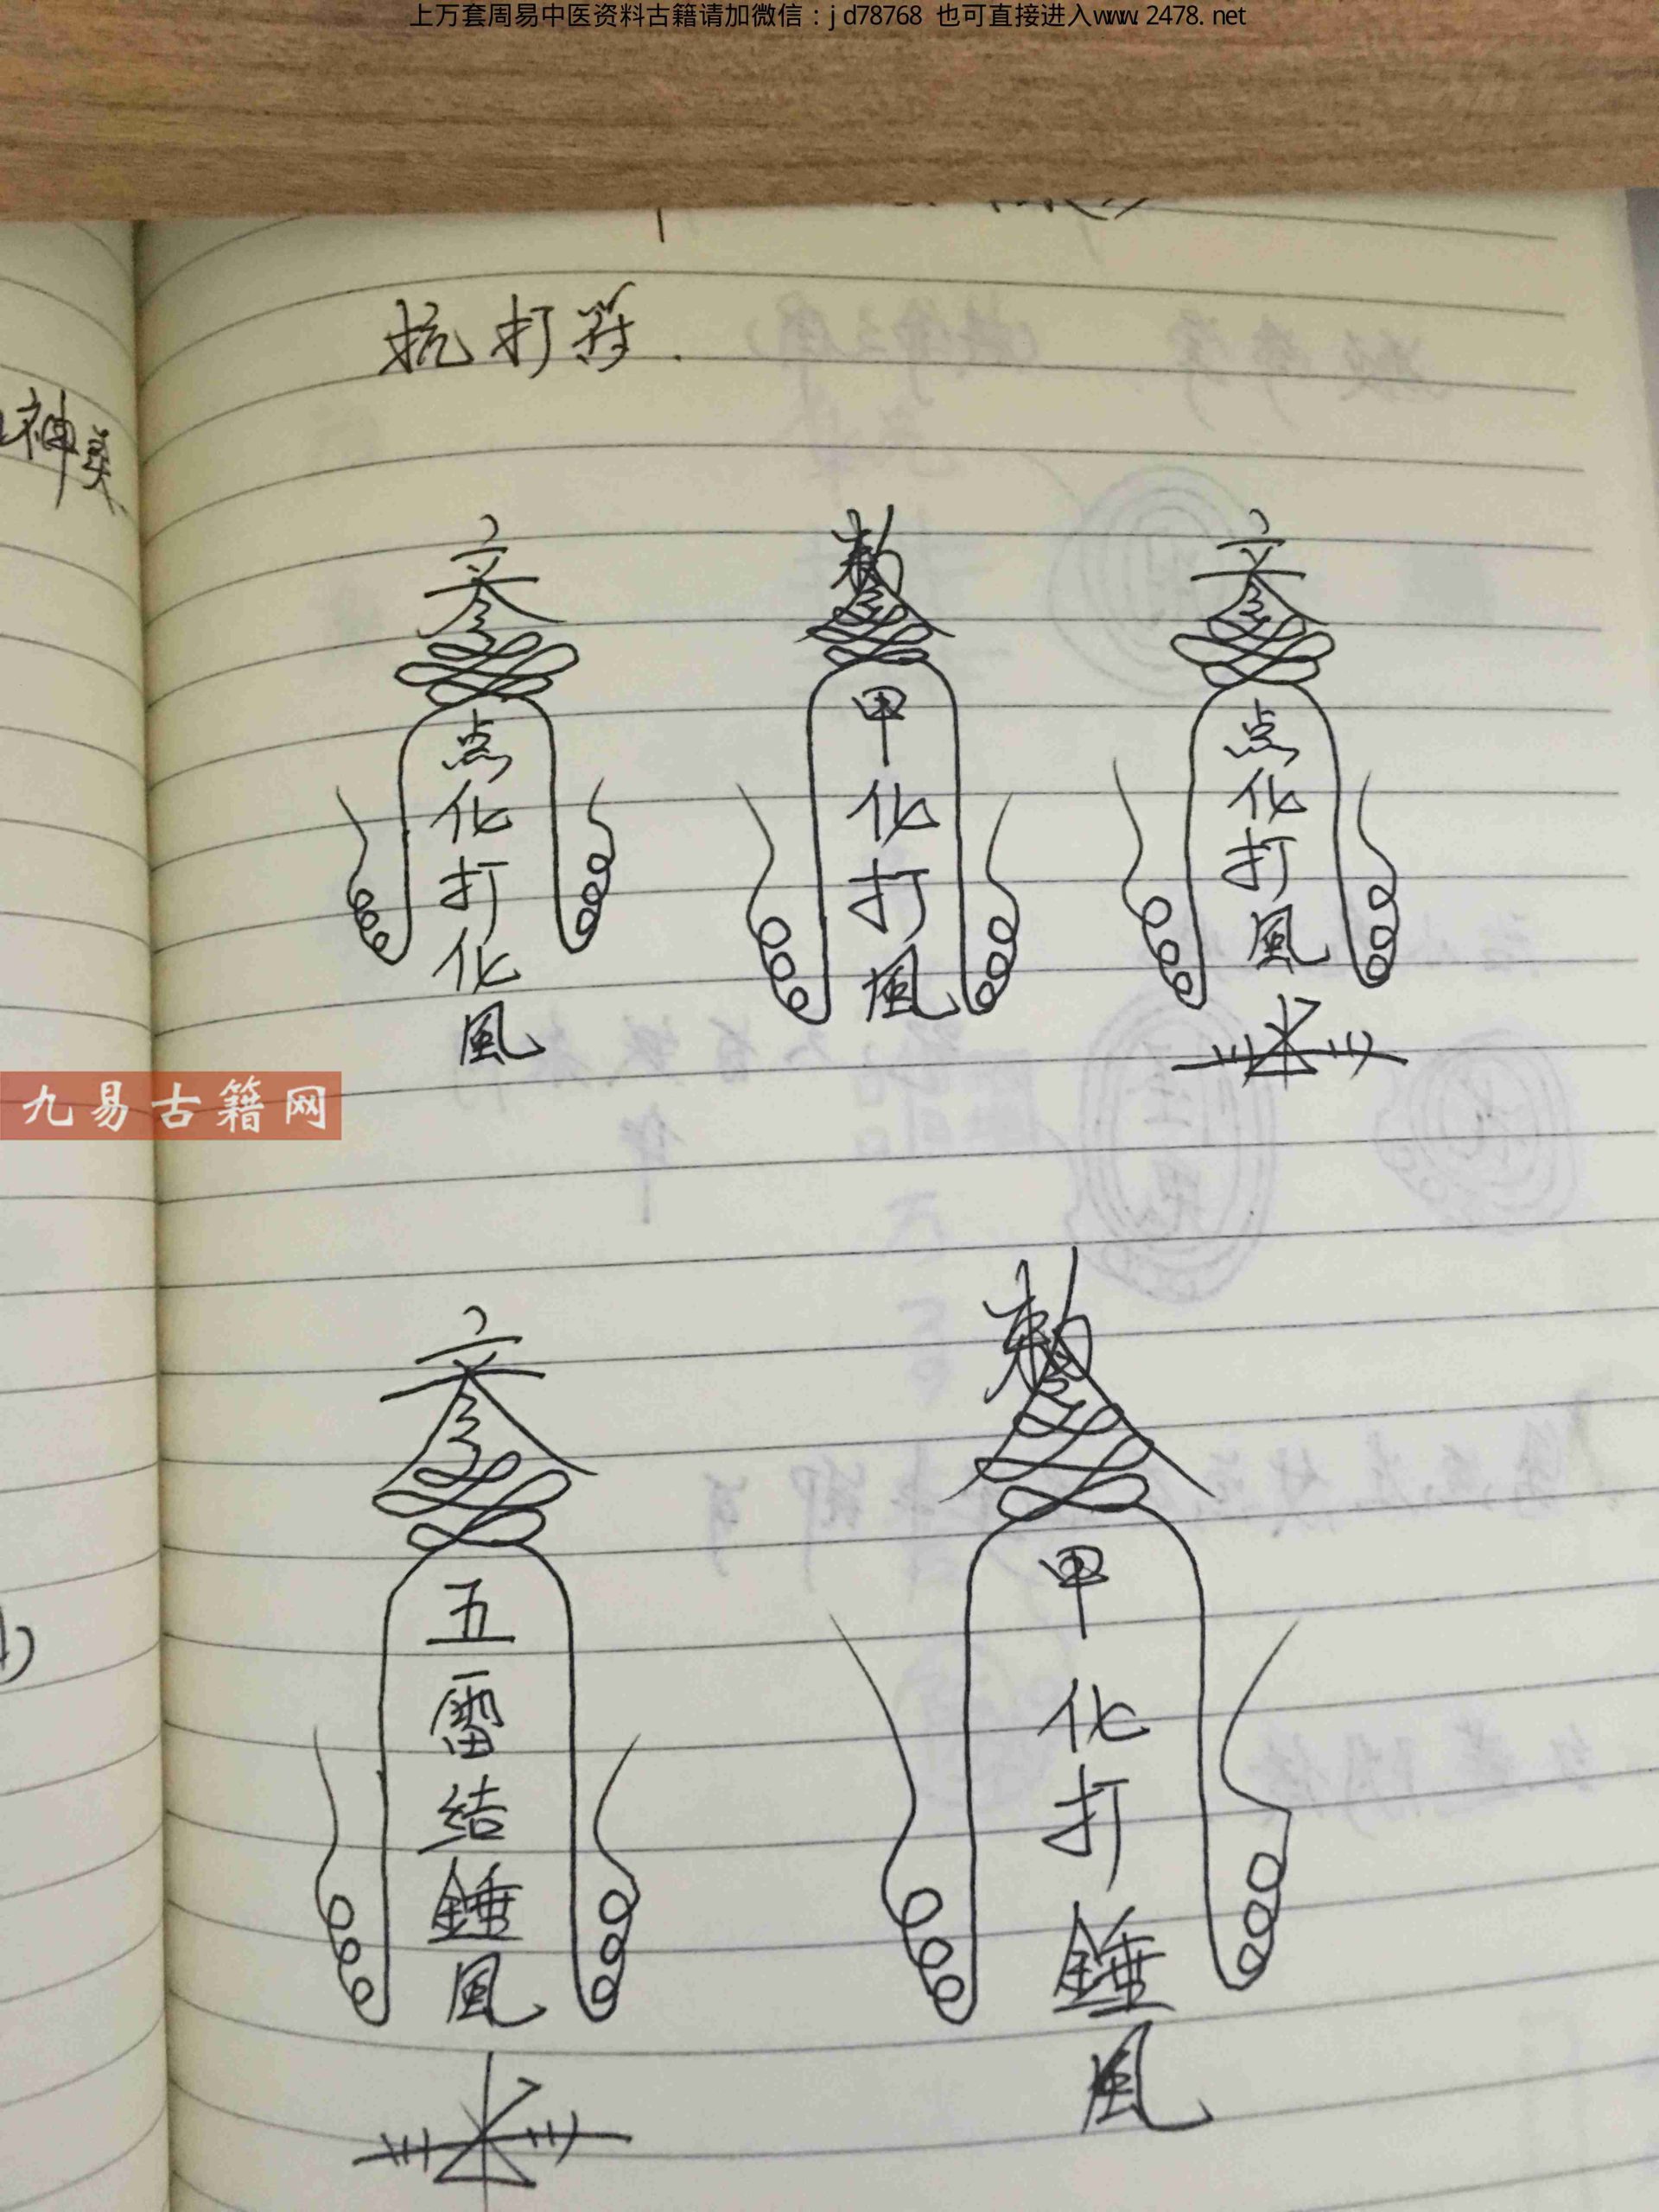 上万套周易中医资料古籍请加微信：jd78768 也可直接进入www.2478.net
抗打符.
神类
点化打化風
敕
甲化打風
点化打風
九易古籍网
五雷结錘風
敕
甲化打錘風